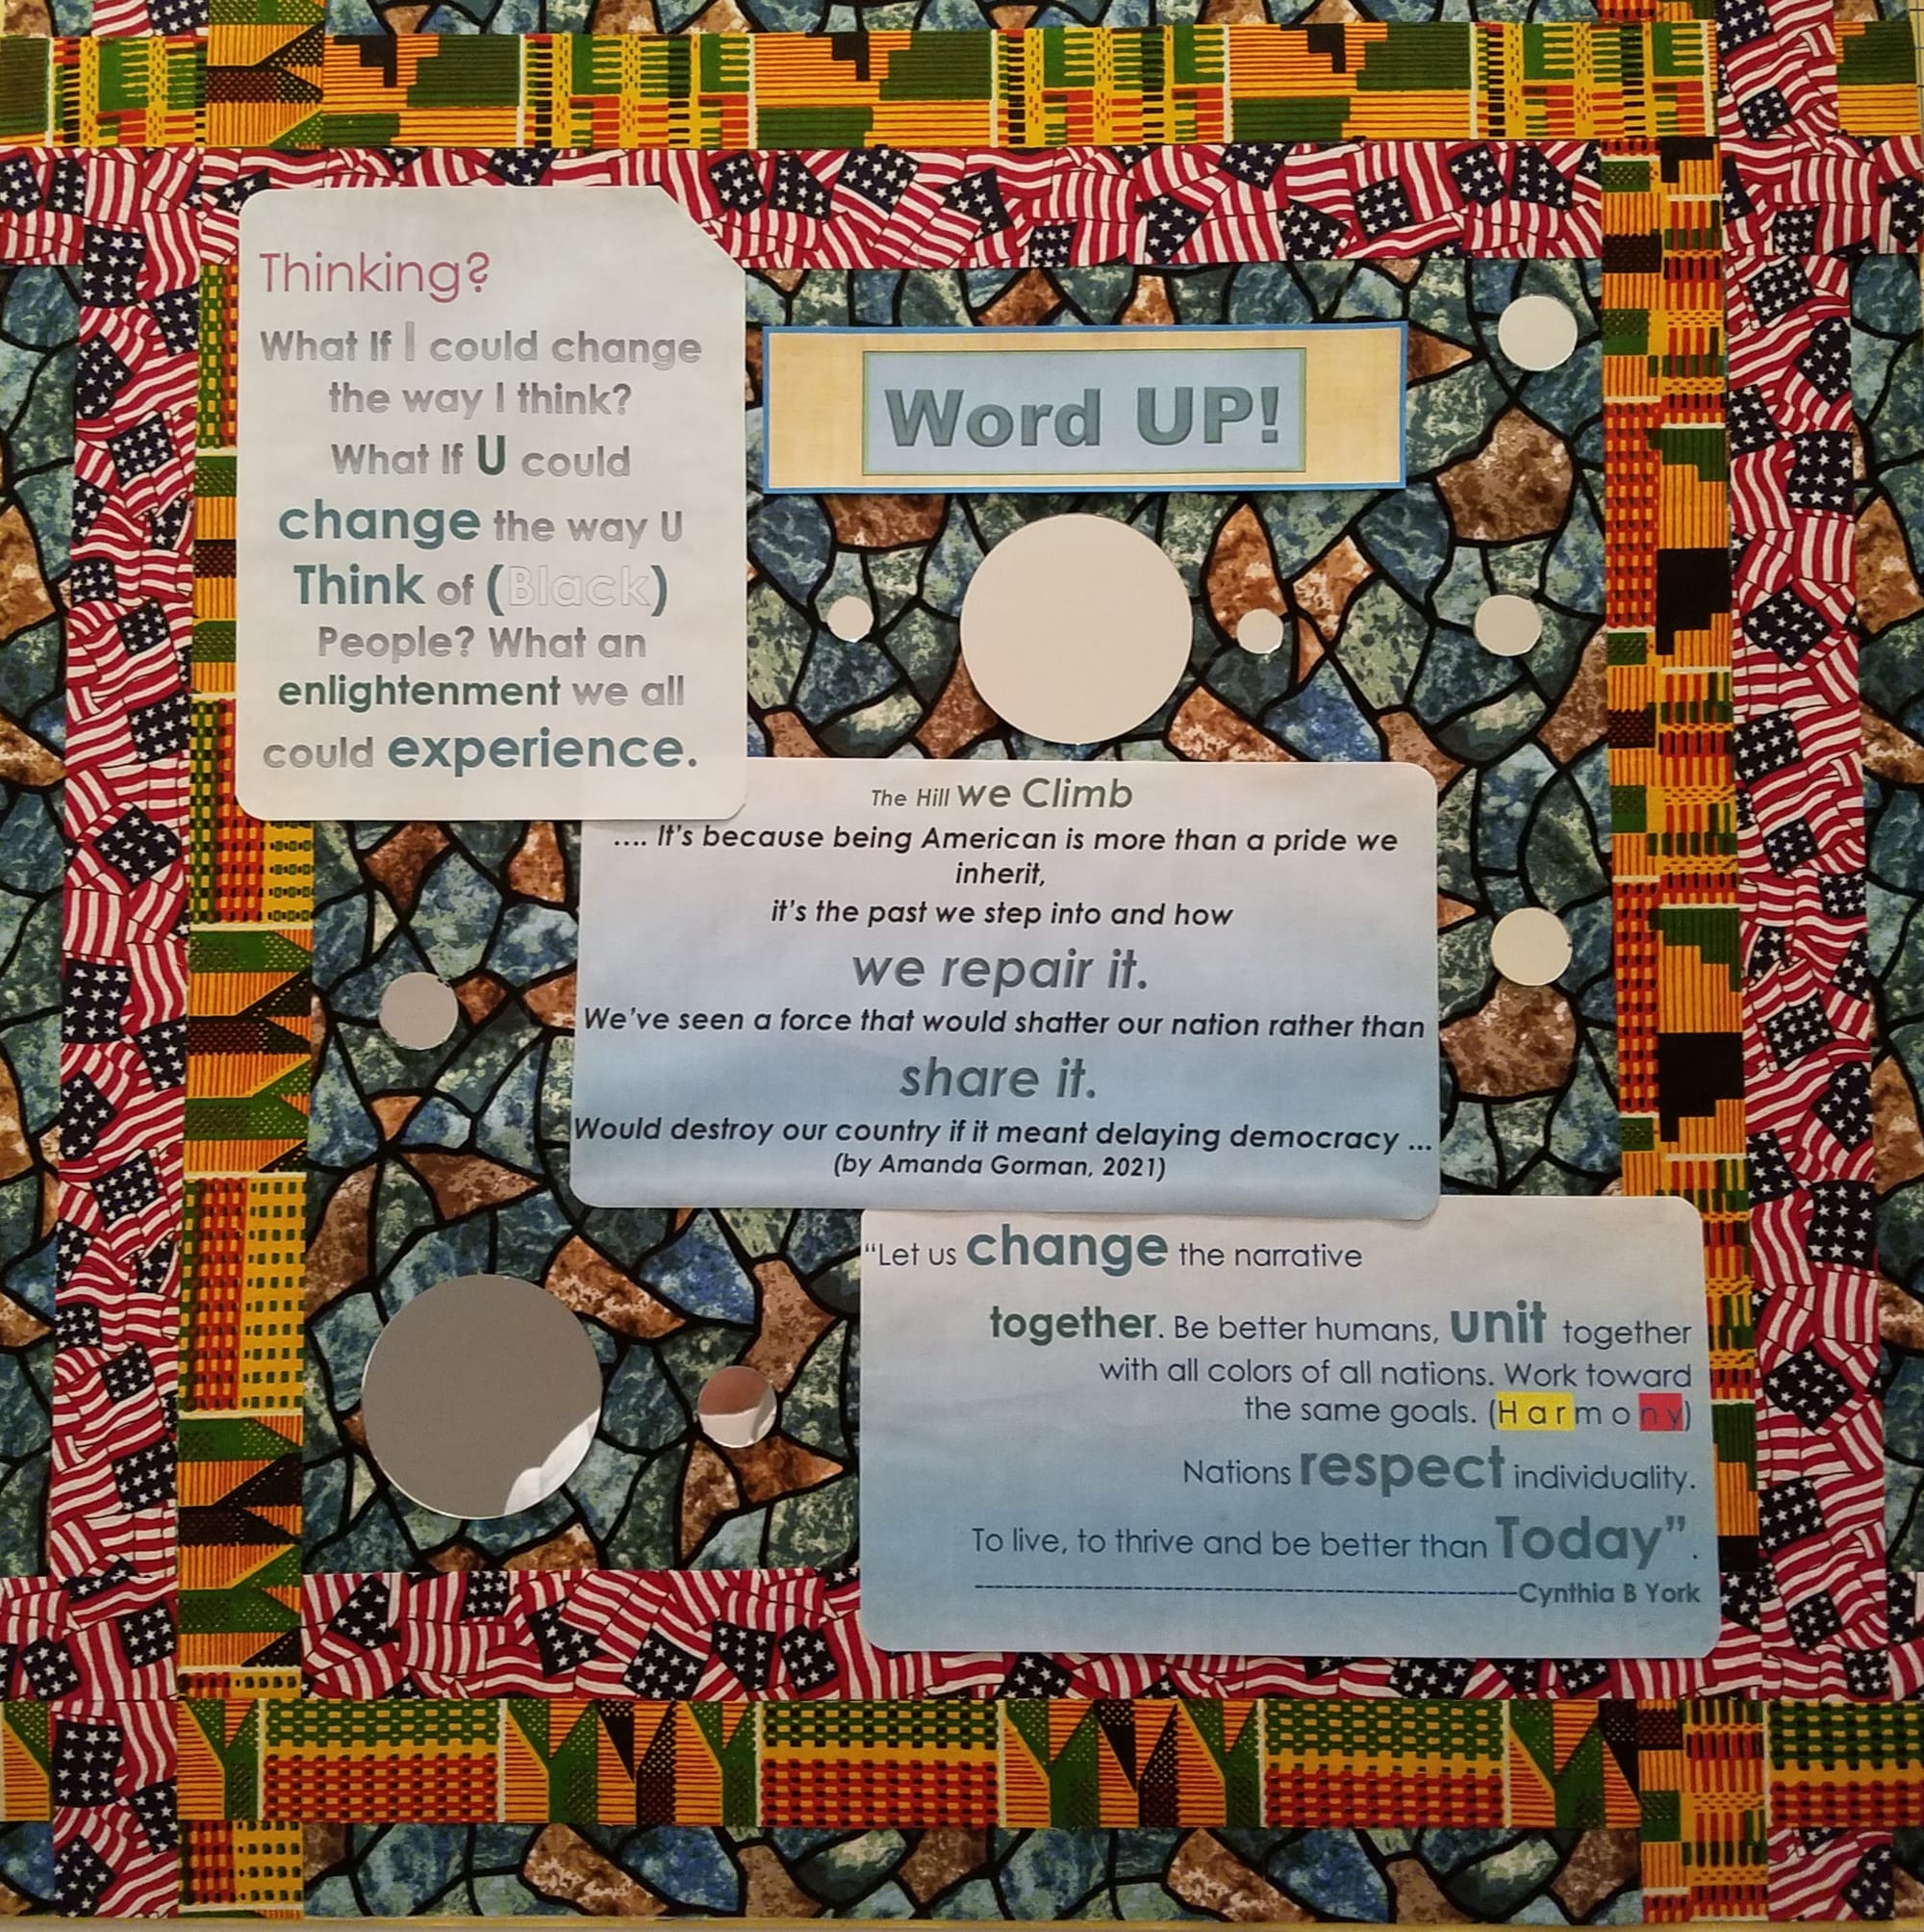 Thinking?
What If I could change
the way I think?
What If U could
change the way U
Think of (Black)
People? What an
enlightenment we all
could experience.
Word UP!
The Hill we Climb
.... It's because being American is more than a pride we
inherit,
it's the past we step into and how
we repair it.
We've seen a force that would shatter our nation rather than
share it.
Would destroy our country if it meant delaying democracy ...
(by Amanda Gorman, 2021)
“Let us change the narrative
together. Be better humans, unit together
with all colors of all nations. Work toward
the same goals. (H a r m o n y)
Nations respect individuality.
To live, to thrive and be better than Today” .
--------------------------------------------------Cynthia B York